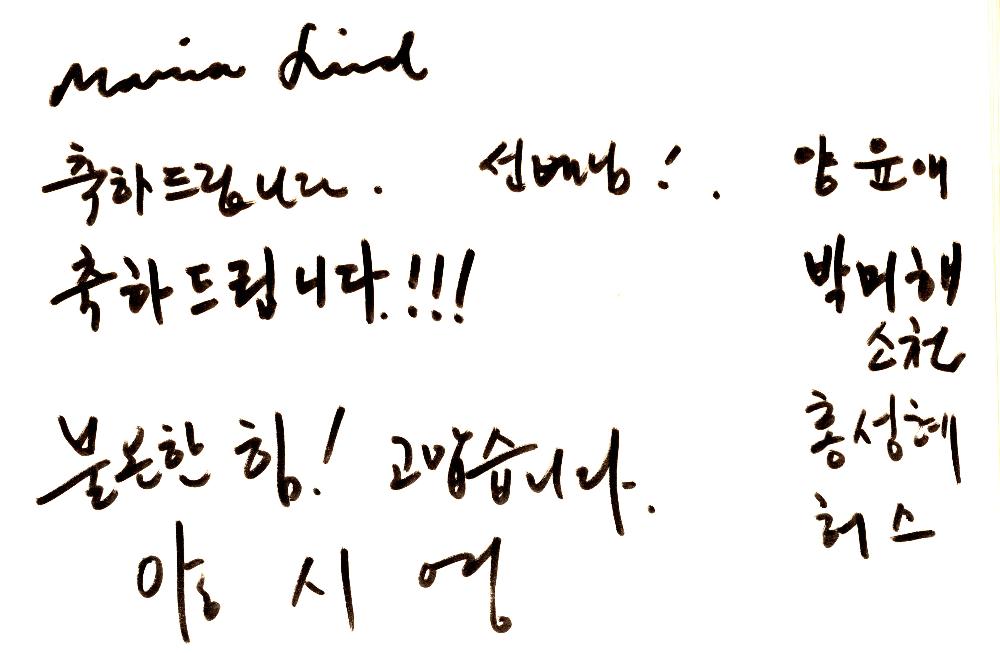 Maria Lind
축하드립니다. 선배님! . 양윤애
축하드립니다.!!! 박미해
소천
불온한 힘! 고맙습니다. 홍성혜
허스
시